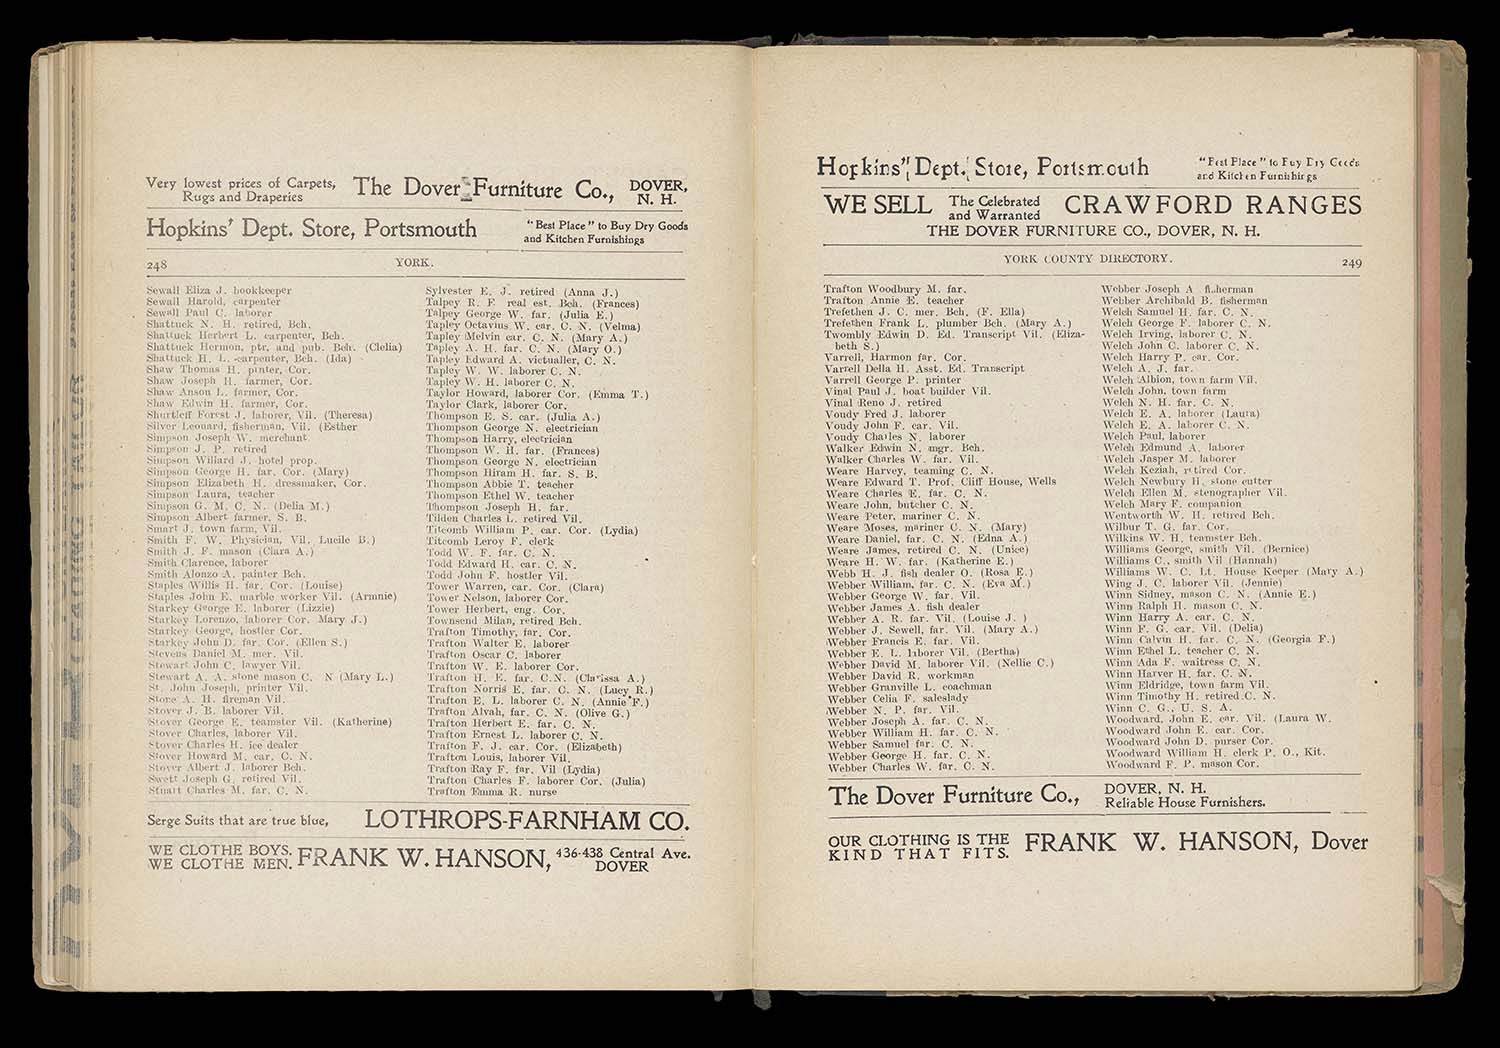 Very lowest prices of Carpets,
Rugs and Draperies
The Dover Furniture Co.,
DOVER,
N. H.
Hopkins' Dept. Store, Portsmouth
"Best Place" to Buy Dry Goods
and Kitchen Furnishings
248
YORK.
Sewall Eliza J. bookkeeper
Sewall Harold, carpenter
Sewall Paul C. laborer
Shattuck N. H. retired, Bch.
Shattuck Herbert L. carpenter, Bch.
Shattuck Hermon, ptr, and pub. Bch. (Clelia)
Shattuck H. L. carpenter, Bch. (Ida)
Shaw Thomas H. pinter, Cor.
Shaw Joseph H. farmer, Cor.
Shaw Anson L. farmer, Cor.
Shaw Edwin H. farmer, Cor.
Shurtleff Forest J. laborer, Vil. (Theresa)
Silver Leonard, fisherman, Vil. (Esther
Simpson Joseph W. merchant
Simpson J. P. retired
Simpson Willard J. hotel prop.
Simpson George H. far. Cor. (Mary)
Simpson Elizabeth H. dressmaker, Cor.
Simpson Laura, teacher
Simpson G. M. C. N. (Delia M.)
Simpson Albert farmer, S. B.
Smart J. town farm, Vil.
Smith F. W. Physician, Vil. Lucile B.)
Smith J. F. mason (Clara A.)
Smith Clarence, laborer
Smith Alonzo A. painter Bch.
Staples Willis H. far. Cor. (Louise)
Staples John E. marble worker Vil. (Armnie)
Starkey George E. laborer (Lizzie)
Starkey Lorenzo, laborer Cor. Mary J.)
Starkey George, hostler Cor.
Starkey John D. far. Cor. (Ellen S.)
Stevens Daniel M. mer. Vil.
Stewart John C. lawyer Vil.
Stewart A. A. stone mason C. N (Mary L.)
St. John Joseph, printer Vil.
Stone A. H. fireman Vil.
Stover J. B. laborer Vil.
Stover George E. teamster Vil. (Katherine)
Stover Charles, laborer Vil.
Stover Charles H. ice dealer
Stover Howard M. car. C. N.
Stover Albert J. laborer Bch.
Swett Joseph G. retired Vil.
Stuart Charles M. far. C. N.
Sylvester E. J. retired (Anna J.)
Talpey R. F. real est. Bch. (Frances)
Talpey George W. far. (Julia E.)
Tapley Octavius W. car. C. N. (Velma)
Tapley Melvin car. C. N. (Mary A.)
Tapley A. H. far. C. N. (Mary O.)
Tapley Edward A. victualler, C. N.
Tapley W. W. laborer C. N.
Tapley W. H. laborer C. N.
Taylor Howard, laborer Cor. (Emma T.)
Taylor Clark, laborer Cor.
Thompson E. S. car. (Julia A.)
Thompson George N. electrician
Thompson Harry, electrician
Thompson W. H. far. (Frances)
Thompson George N. electrician
Thompson Hiram H. far. S. B.
Thompson Abbie T. teacher
Thompson Ethel W. teacher
Thompson Joseph H. far.
Tilden Charles L. retired Vil.
Titcomb William P. car. Cor. (Lydia)
Titcomb Leroy F. clerk
Todd W. F. far. C. N.
Todd Edward H. car. C. N.
Todd John F. hostler Vil.
Tower Warren, car. Cor. (Clara)
Tower Nelson, laborer Cor.
Tower Herbert, eng. Cor.
Townsend Milan, retired Bch.
Trafton Timothy, far. Cor.
Trafton Walter E. laborer
Trafton Oscar C. laborer
Trafton W. E. laborer Cor.
Trafton H. E. far. C.N. (Clarissa A.)
Trafton Norris E. far. C. N. (Lucy R.)
Trafton E. L. laborer C. N. (Annie F.)
Trafton Alvah, far. C. N. (Olive G.)
Trafton Herbert E. far. C. N.
Trafton Ernest L. laborer C. N.
Trafton F. J. car. Cor. (Elizabeth)
Trafton Louis, laborer Vil.
Trafton Ray F. far. Vil (Lydia)
Trafton Charles F. laborer Cor. (Julia)
Trafton Emma R. nurse
Serge Suits that are true blue,
LOTHROPS-FARNHAM CO.
WE CLOTHE BOYS.
WE CLOTHE MEN.
FRANK W. HANSON,
436-438 Central Ave.
DOVER
Hopkins' Dept. Store, Portsmouth
"Best Place" to Buy Dry Goods
and Kitchen Furnishings
WE SELL
The Celebrated
and Warranted
CRAWFORD RANGES
THE DOVER FURNITURE CO., DOVER, N. H.
YORK COUNTY DIRECTORY.
249
Trafton Woodbury M. far.
Trafton Annie E. teacher
Trefethen J. C. mer. Bch. (F. Ella)
Trefethen Frank L. plumber Bch. (Mary A.)
Twombly Edwin D. Ed. Transcript Vil. (Eliza-
beth S.)
Varrell, Harmon far. Cor.
Varrell Della H. Asst. Ed. Transcript
Varrell George P. printer
Vinal Paul J. boat builder Vil.
Vinal Reno J. retired
Voudy Fred J. laborer
Voudy John F. car. Vil.
Voudy Charles N. laborer
Walker Edwin N. mgr. Bch.
Walker Charles W. far. Vil.
Weare Harvey, teaming C. N.
Weare Edward T. Prof. Cliff House, Wells
Weare Charles E. far. C. N.
Weare John, butcher C. N.
Weare Peter, mariner C. N.
Weare Moses, mariner C. N. (Mary)
Weare Daniel, far. C. N. (Edna A.)
Weare James, retired C. N. (Unice)
Weare H. W. far. (Katherine E.)
Webb H. J. fish dealer O. (Rosa E.)
Webber William, far. C. N. (Eva M.)
Webber George W. far. Vil.
Webber James A. fish dealer
Webber A. R. far. Vil. (Louise J. )
Webber J. Sewell, far. Vil. (Mary A.)
Webber Francis E. far. Vil.
Webber E. L. laborer Vil. (Bertha)
Webber David M. laborer Vil. (Nellie C.)
Webber David R. workman
Webber Granville L. coachman
Webber Celia F. saleslady
Webber N. P. far. Vil.
Webber Joseph A. far. C. N.
Webber William H. far. C. N.
Webber Samuel far. C. N.
Webber George H. far. C. N.
Webber Charles W. far. C. N.
Webber Joseph A. fisherman
Webber Archibald B. fisherman
Welch Samuel H. far. C. N.
Welch George F. laborer C. N.
Welch Irving, laborer C. N.
Welch John C. laborer C. N.
Welch Harry P. car. Cor.
Welch A. J. far.
Welch Albion, town farm Vil.
Welch John, town farm
Welch N. H. far. C. N.
Welch E. A. laborer (Laura)
Welch E. A. laborer C. N.
Welch Paul, laborer
Welch Edmund A. laborer
Welch Jasper M. laborer
Welch Keziah, retired Cor.
Welch Newbury H. stone cutter
Welch Ellen M. stenographer Vil.
Welch Mary F. companion
Wentworth W. H. retired Bch.
Wilbur T. G. far. Cor.
Wilkins W. H. teamster Bch.
Williams George, smith Vil. (Bernice)
Williams C., smith Vil (Hannah)
Williams W. C. Lt. House Keeper (Mary A.)
Wing J. C. laborer Vil. (Jennie)
Winn Sidney, mason C. N. (Annie E.)
Winn Ralph H. mason C. N.
Winn Harry A. car. C. N.
Winn F. G. car. Vil. (Delia)
Winn Calvin H. far. C. N. (Georgia F.)
Winn Ethel L. teacher C. N.
Winn Ada F. waitress C. N.
Winn Harver H. far. C. N.
Winn Eldridge, town farm Vil.
Winn Timothy H. retired C. N.
Winn C. G., U. S. A.
Woodward, John E. car. Vil. (Laura W.
Woodward John E. car. Cor.
Woodward John D. purser Cor.
Woodward William H. clerk P. O., Kit.
Woodward F. P. mason Cor.
The Dover Furniture Co.,
DOVER, N. H.
Reliable House Furnishers.
OUR CLOTHING IS THE
KIND THAT FITS.
FRANK W. HANSON, Dover